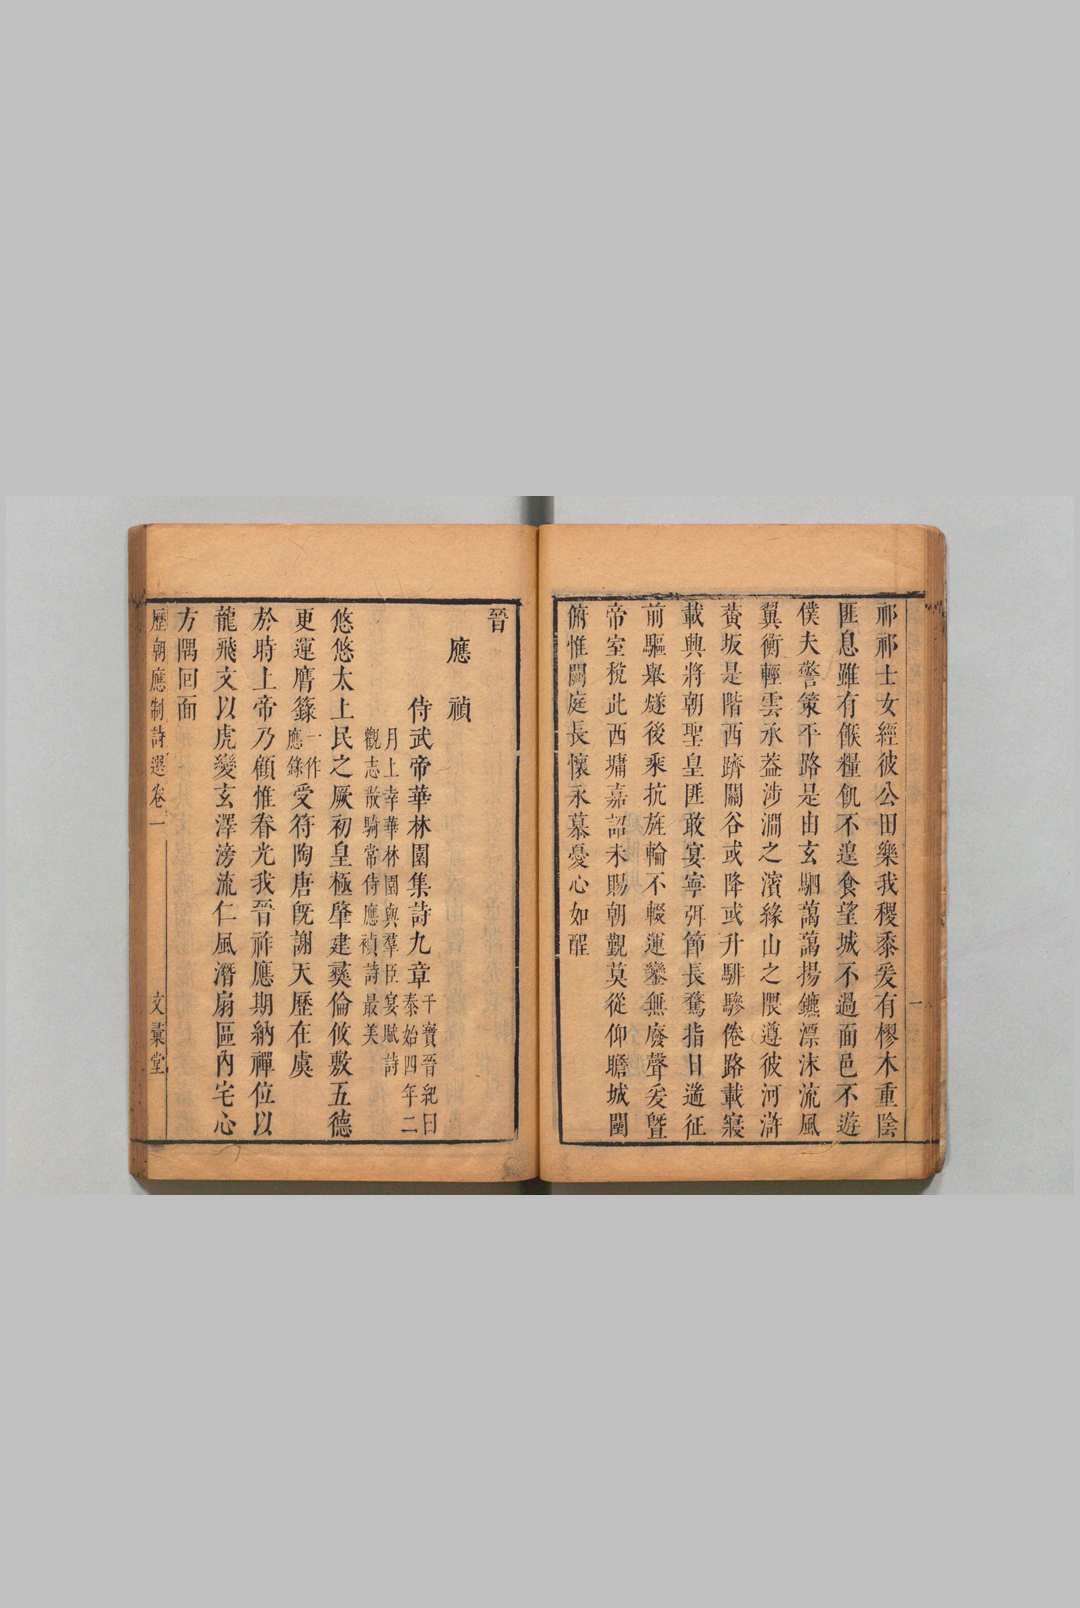 祁祁士女經彼公田樂我稷黍爰有樛木重陰
匪息雖有餱糧飢不遑食望城不過面邑不遊
僕夫警策平路是由玄駟藹藹揚鑣漂沫流風
翼衡輕雲承葢涉澗之濱緣山之隈遵彼河滸
黃坂是階西躋關谷或降或升騑驂倦路載寢
載興將朝聖皇匪敢宴寧弭節長騖指日遄征
前驅舉燧後乘抗旌輪不輟運鑾無廢聲爰曁
帝室稅此西墉嘉詔未賜朝觀莫從仰瞻城閾
俯惟闕庭長懷永慕憂心如酲
一
晉
應禎
侍武帝華林園集詩九章
干寶晉紀曰
泰始四年二
月上幸華林園與羣臣宴賦詩
觀志散騎常侍應禎詩最美
悠悠太上民之厥初皇極肇建彝倫攸敷五德
更運膺籙一作應錄受符陶唐旣謝天歷在虞
於時上帝乃顧惟眷光我晉祚應期納禪位以
龍飛文以虎變玄澤滂流仁風潛扇區內宅心
方隅回面
歷朝應制詩選卷一
文彙堂